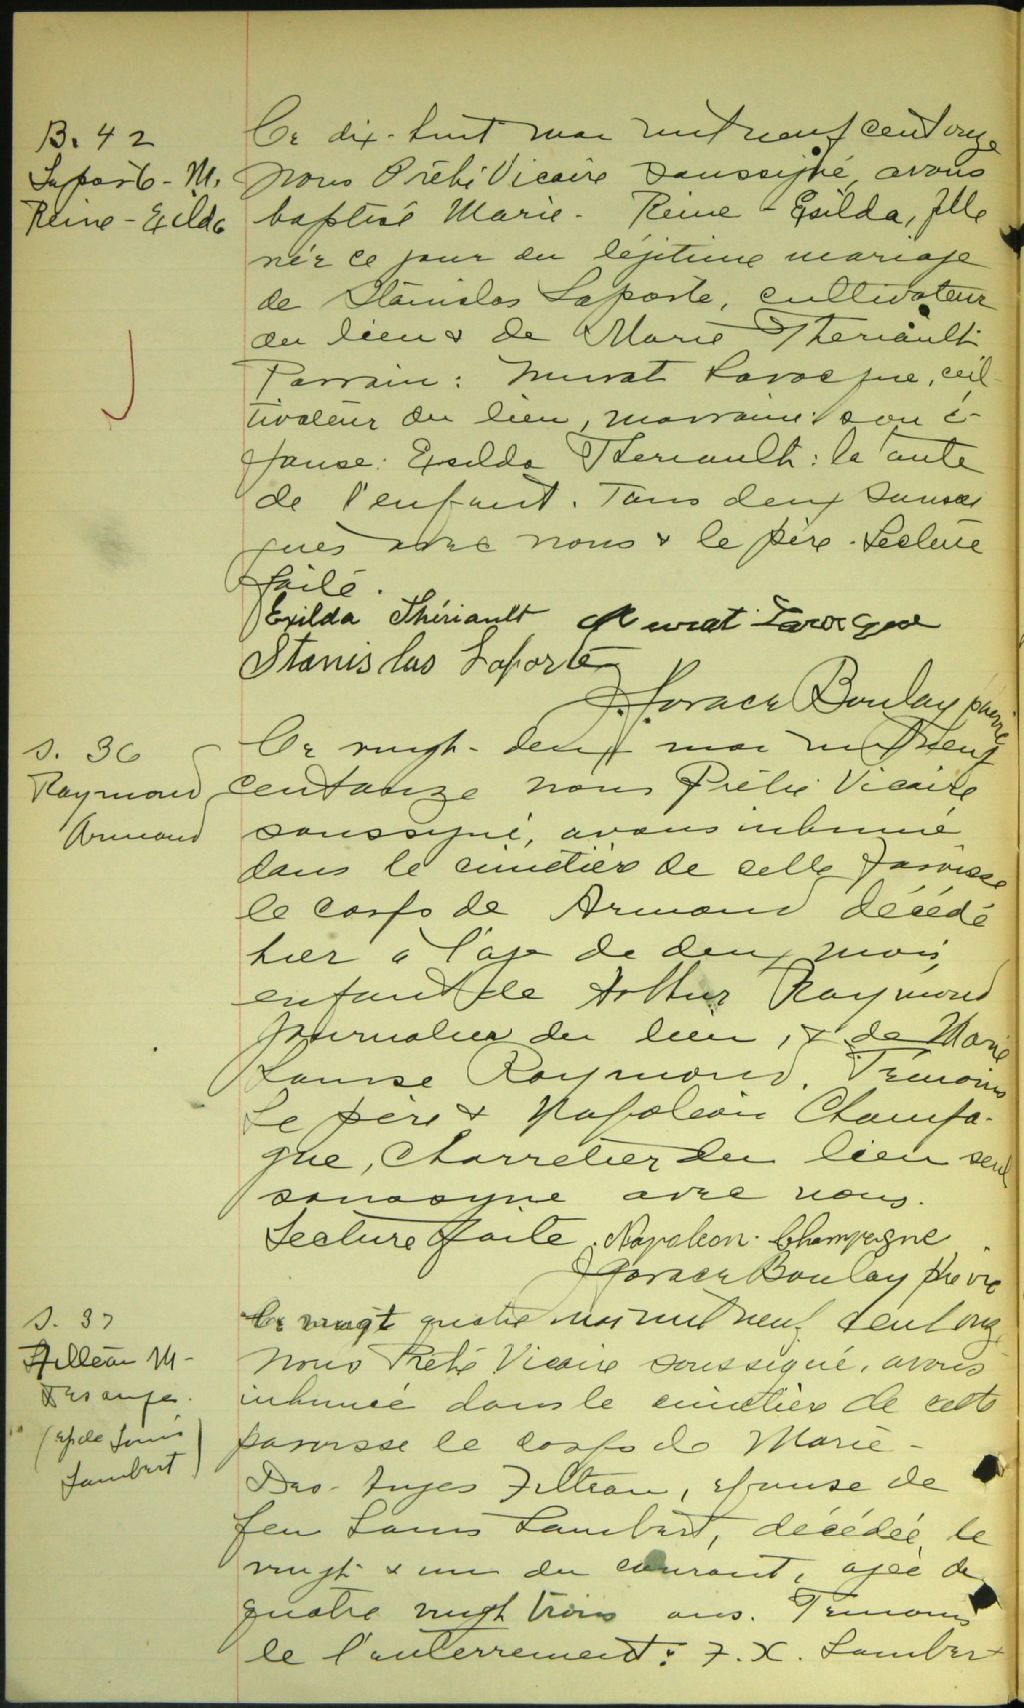 B. 42
Laporte - M.
Reine - Exilda
Ce dix-huit mai mil neuf cent onze
nous Prêtre Vicaire soussigné, avons
baptisé Marie - Reine - Exilda, fille
née ce jour du légitime mariage
de Stanislas Laporte, cultivateur
du lieu & de Marie Theriault
Parrain : Murat Larocque, cul-
tivateur du lieu, marraine : son é-
pouse : Exilda Theriault : la tante
de l'enfant. Tous deux soussi
gnés avec nous & le père. Lecture
faite.
Exilda Thériault Murat Larocque
Stanislas Laporte
J. Horace Boulay ptre vic
S. 36
Raymond
Armand
Ce vingt-deux mai mil neuf
cent onze nous Prêtre Vicaire
soussigné, avons inhumé
dans le cimetière de cette paroisse
le corps de Armand décédé
hier à l'age de deux mois,
enfant de Arthur Raymond
journalier du lieu, & de Marie
Louise Raymond. Témoins
Le père & Napoléon Champa-
gne, Charretier du lieu seul
soussigné avec nous.
Lecture faite. Napoleon Champagne
J Horace Boulay ptre vic
S. 37
Filteau M-
Des anges.
(ép de Louis
Lambert)
Ce vingt quatre mai mil neuf cent onze,
nous Prêtre Vicaire soussigné, avons
inhumé dans le cimetière de cette
paroisse le corps de Marie -
Des-Anges Filteau, épouse de
feu Louis Lambert, décédée, le
vingt & un du courant, agée de
quatre vingt trois ans. Témoins
de l'enterrement : F. X. Lambert